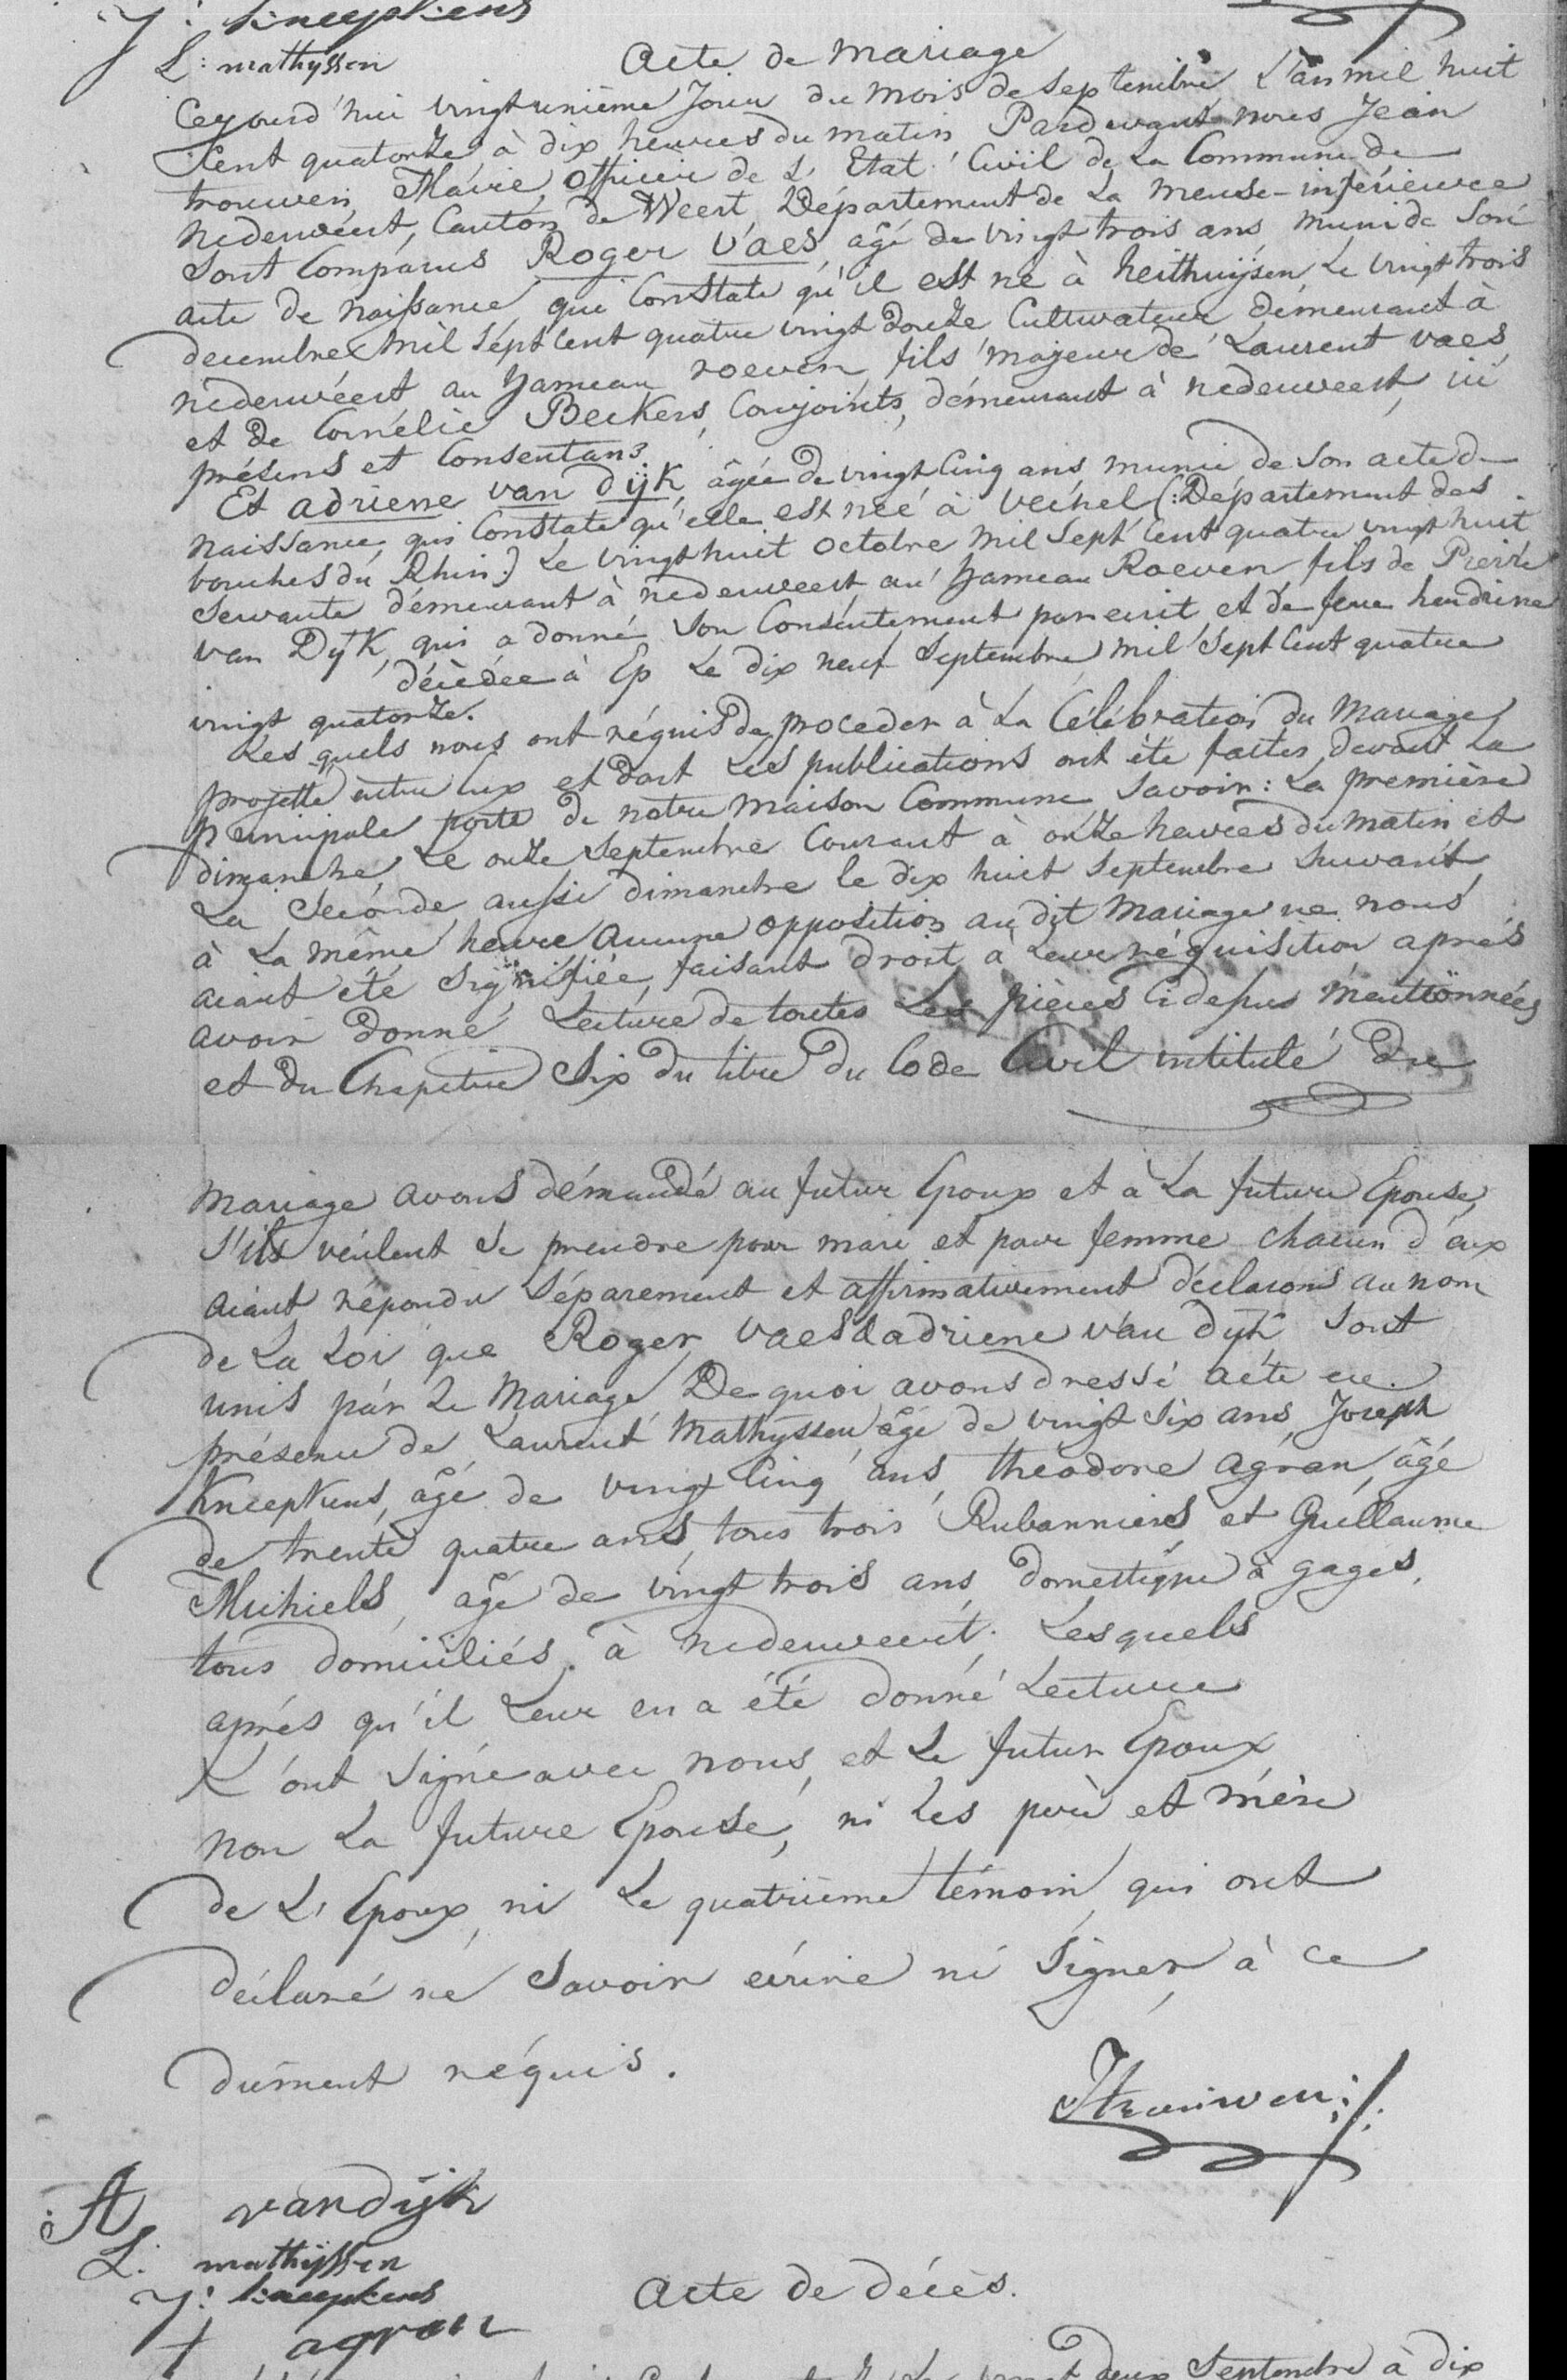 J: kneepkens
L: mathyssen
Acte de Mariage
Cejourd'hui vingtunième Jour du mois de Septembre L'an mil huit
Cent quatorze, à dix heures du matin Pardevant nous Jean
trouwen, Maire, Officier de L'Etat Civil de La Commune de
nederwéert, Canton de Weert, Département de La Meuse-inférieure
Sont Comparus Roger Vaes, agé de vingt trois ans muni de Son
acte de naissance, qui Constate qu'il est né à heithuijsen Le vingt trois
decembre Mil Sept Cent quatre vingt douze Cultivateur démeurant à
nederwéert au hameau roeven fils majeur de Laurent vaes
et de Cornélie Beckers, Conjoints, démeurant à nederweert, ici
présens et Consentans
Et adriene van dijk, âgée de vingt Cinq ans, munie de Son acte de
naissance, qui Constate qu'elle est née à Vechel (: Département des
bouches du Rhin :) Le vingt huit octobre Mil Sept Cent quatre vingt huit
Servante démeurant à nederweert au hameau Roeven fils de Pierre
van Dijk, qui a donné Son Consentement par ecrit, et de feue hendrine
décèdée à Ep Le dix neuf Septembre Mil Sept Cent quatre
vingt quatorze.
Les quels nous ont réquis de proceder à La Célébration du Mariage
projetté entre eux et dont Les publications ont été faites devant La
principale porte de notre Maison Commune, Savoir: La première
dimanche, Le onze Septembre Courant à onze heures du Matin et
La Séconde, aussi dimanche le dix huit Septembre Suivant,
à La même heure Aucune opposition au dit Mariage ne nous
aiant été Signifiée, faisant droit à Leur réquisition aprés
avoir donné Lecture de toutes Les pièces Cidessus Mentionnées
et du Chapitre Six du titre du Code Civil intitulé Du
Mariage avons démandé au futur Epoux et à La future Epouse,
S'ils véulent Se prendre pour mari et pour femme chacun d'eux
aiant répondu Séparement et affirmativement déclarons au nom
de La Loi que Roger Vaes & adriene van dyk Sont
unis par Le Mariage De quoi avons dressé acte en
présence de Laurent Mathyssen âgé de vingt Six ans, Joseph
Kneepkens, âgé de vingt Cinq ans, théodore agran, âgé
de trente quatre ans, tous trois Rubanniers et Guillaume
Michiels, âgé de vingt trois ans, domestique à gages,
tous domiciliés à nederweert. Lesquels
aprés qu'il Leur en a été donné Lecture
L'ont Signé avec nous, et Le futur Epoux
non La future Epouse, ni Les père et mère
de L'Epoux, ni Le quatrième témoin qui ont
déclaré ne Savoir écrire ni Signer, à ce
dument réquis.
JTrouwen
A vandijk
L. mathijssen
J: kneepkens
t agran
Acte de décès.
deux Septembre à dix